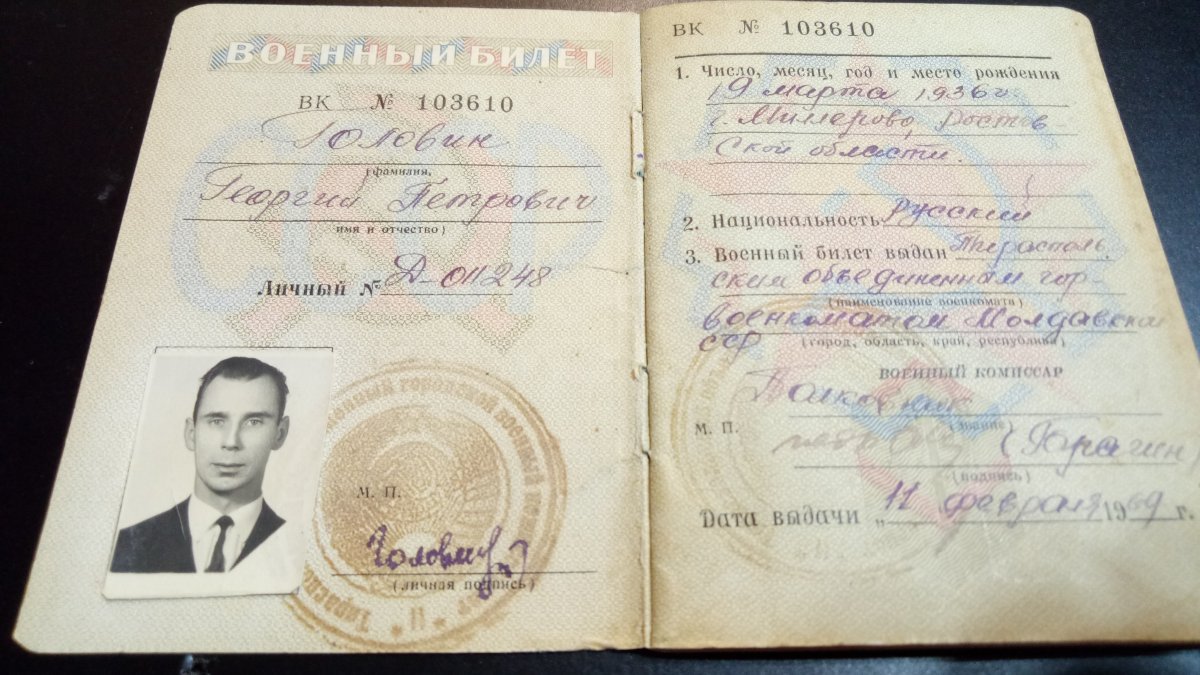 ВОЕННЫЙ БИЛЕТ
ВК № 103610
Головин
(фамилия,
Георгий Петрович
имя и отчество)
Личный № Д-011248
М. П.
Головин
(личная подпись)
ВК № 103610
1. Число, месяц, год и место рождения
19 марта 1936 г.
г. Миллерово, Ростов
ской области.
2. Национальность русский
3. Военный билет выдан Тирасполь
ским объединенным гор-
(наименование военкомата)
военкоматом Молдавской
ССР (город, область, край, республика)
ВОЕННЫЙ КОМИССАР
Полковник
М. П. (звание)
(подпись)
Дата выдачи „11 февраля 1969 г.